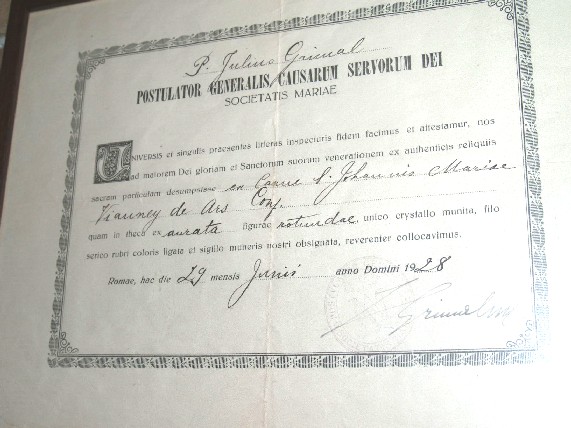 P. Julius Grimal
POSTULATOR GENERALIS CAUSARUM SERVORUM DEI
SOCIETATIS MARIAE
UNIVERSIS et singulis praesentes litteras inspecturis fidem facimus et attestamur, nos
ad maiorem Dei gloriam et Sanctorum suorum venerationem ex authenticis reliquiis
sacram particulam desumpsisse ex Carne S. Johannis Mariae
Vianney de Ars Conf.
quam in theca ex aurata figurae rotundae unico crystallo munita, filo
serico rubri coloris ligata et sigillo muneris nostri obsignata, reverenter collocavimus.
Romae, hac die 29 mensis Junii anno Domini 1928